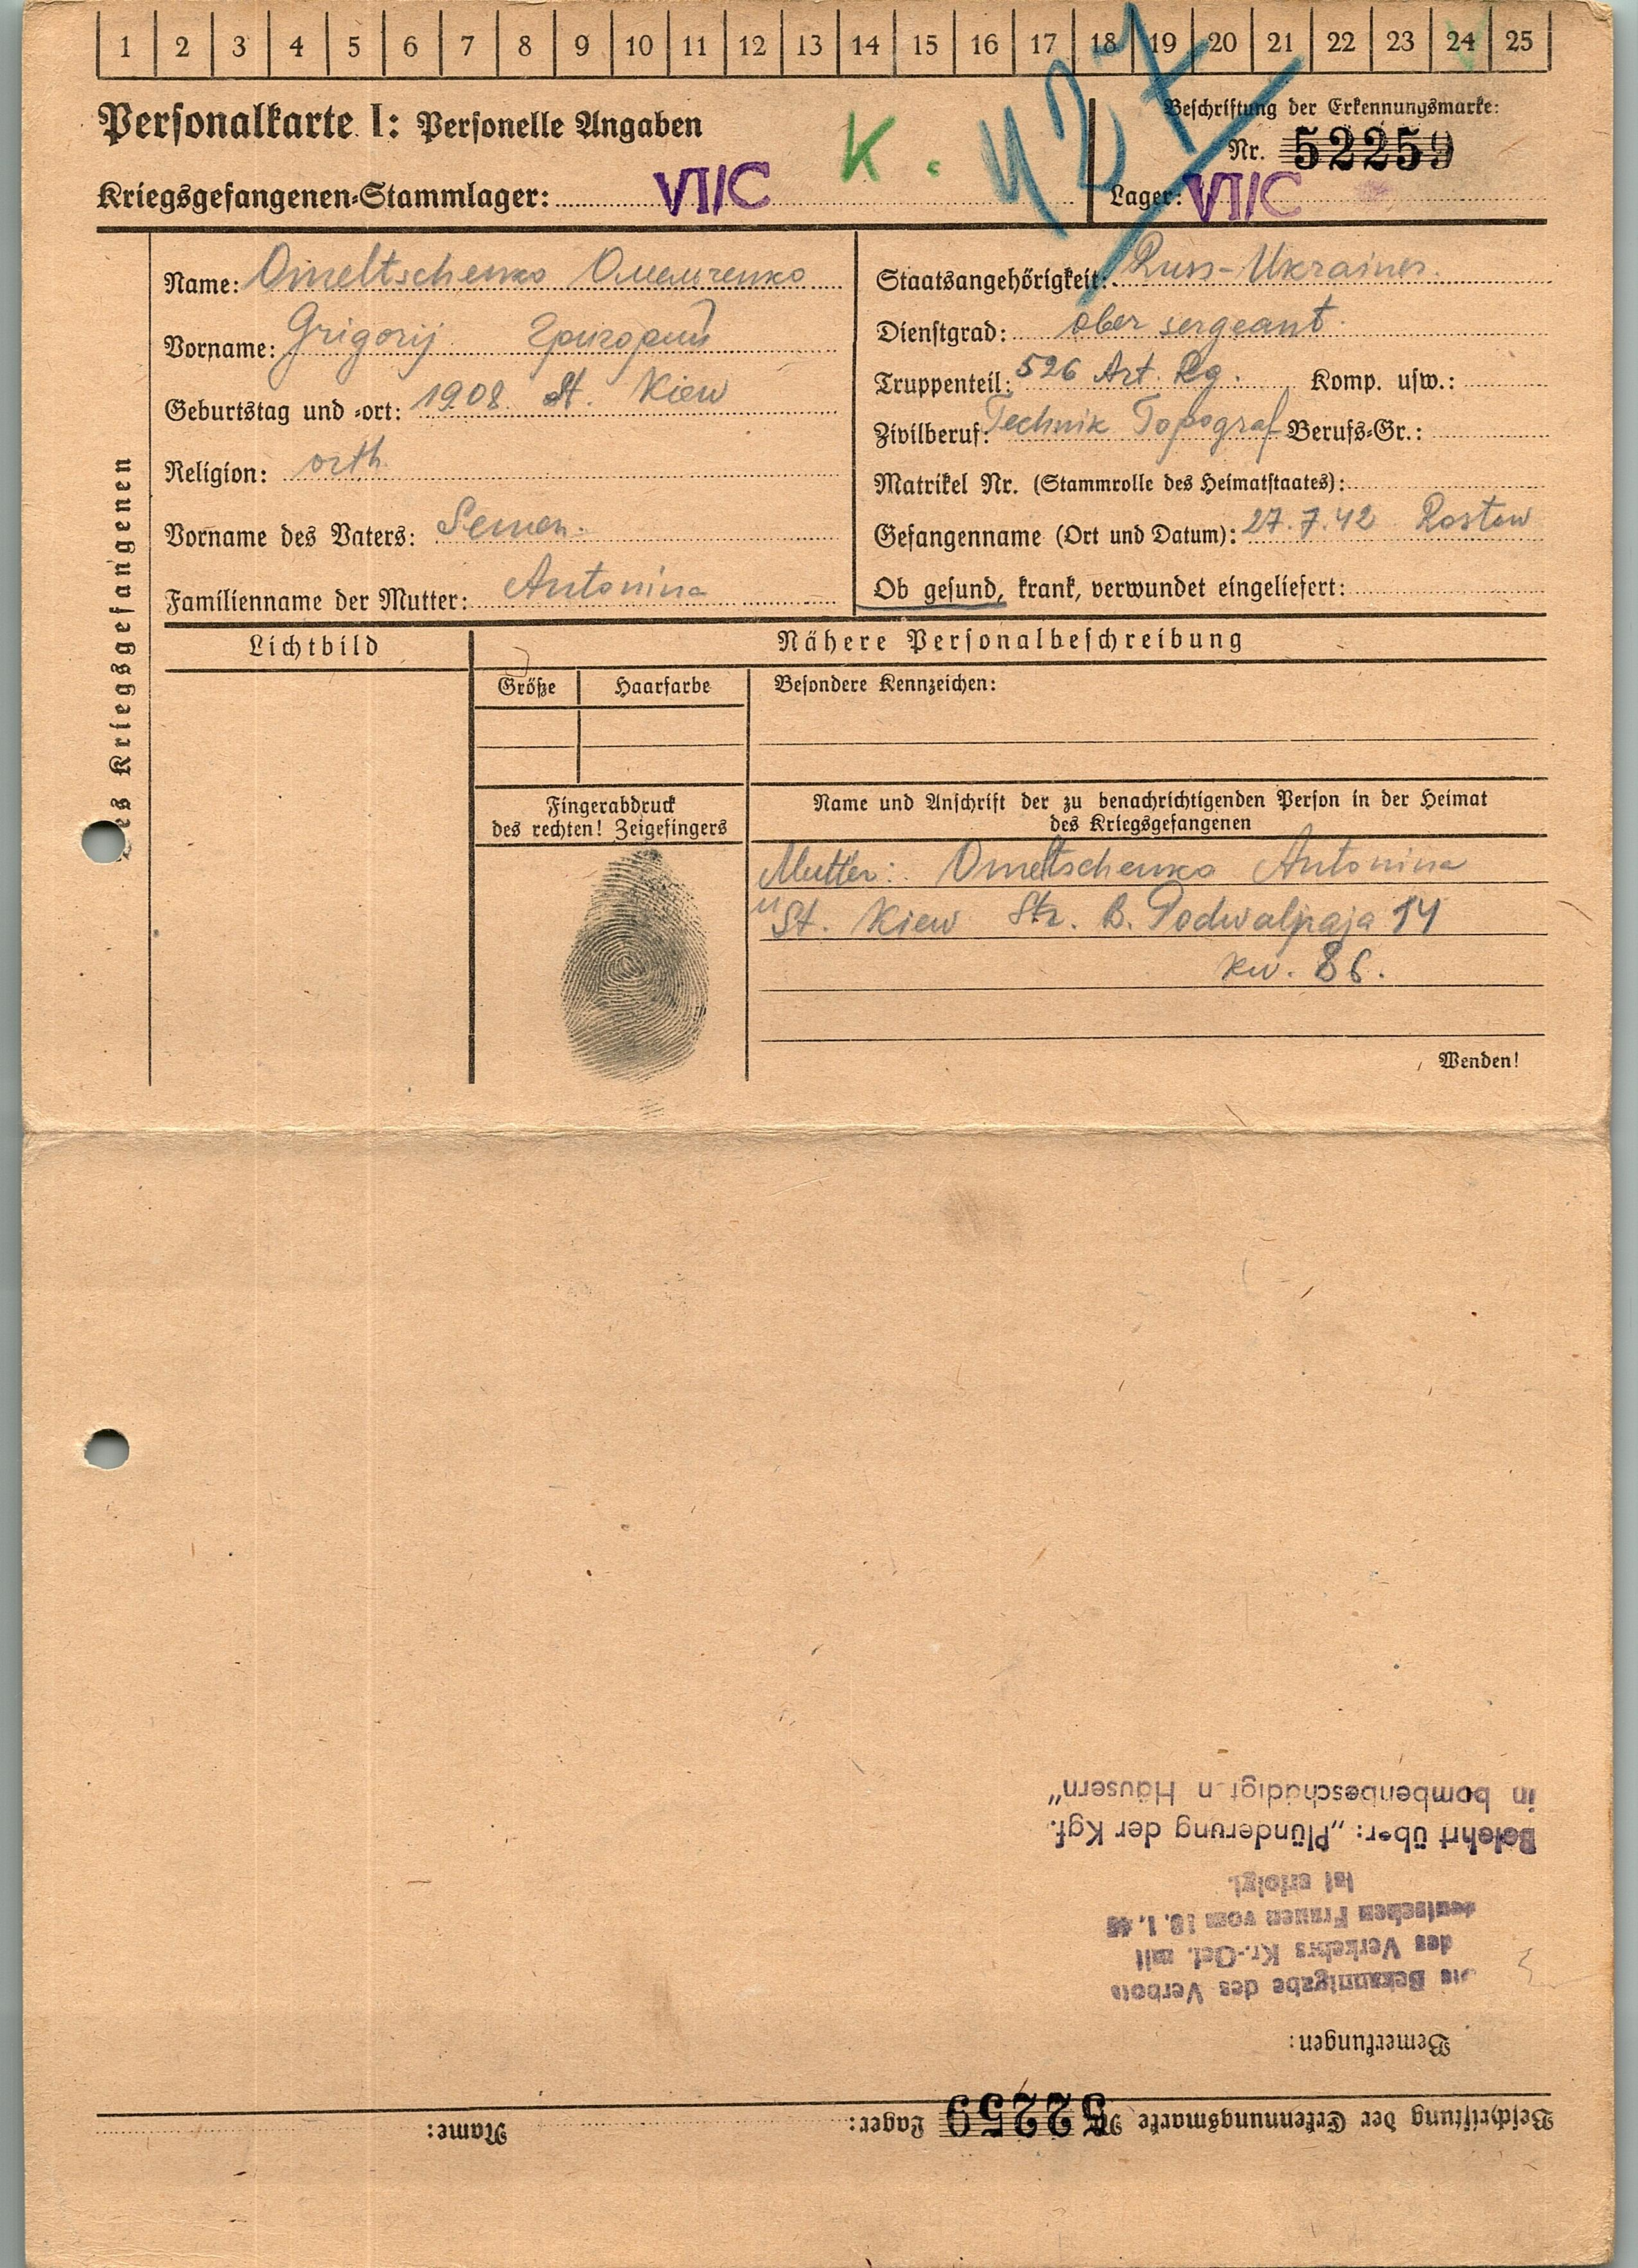 1 2 3 4 5 6 7 8 9 10 11 12 13 14 15 16 17 18 19 20 21 22 23 24 25
427
Personalkarte I: Personelle Angaben
K.
Beschriftung der Erkennungsmarke:
Nr. 52259
Kriegsgefangenen-Stammlager: VI/C
Lager: VI/C
des Kriegsgefangenen
Name: Omeltschenko Омельченко
Vorname: Grigorij Григорий
Geburtstag und -ort: 1908 St. Kiew
Religion: orth
Vorname des Vaters: Semen.
Familienname der Mutter: Antonina
Staatsangehörigkeit: Russ-Ukrainer.
Dienstgrad: ober sergeant.
Truppenteil: 526 Art. Rg. Komp. usw.:
Zivilberuf: Technik Topograf Berufs-Gr.:
Matrikel Nr. (Stammrolle des Heimatstaates):
Gefangenname (Ort und Datum): 27.7.42 Rostow
Ob gesund, krank, verwundet eingeliefert:
Lichtbild
Nähere Personalbeschreibung
Größe Haarfarbe
Besondere Kennzeichen:
Fingerabdruck
des rechten! Zeigefingers
Name und Anschrift der zu benachrichtigenden Person in der Heimat
des Kriegsgefangenen
Mutter: Omeltschenko Antonina
St. Kiew Str. B. Podwalnaja 14
kw. 86.
Wenden!
Beschriftung der Erkennungsmarke Nr. 52259 Lager: Name:
Bemerkungen:
Die Bekanntgabe des Verbots
des Verkehrs Kr.-Gef. mit
deutschen Frauen vom
ist erfolgt.
Belehrt über: „Plünderung der Kgf.
in bombenbeschädigt n Häusern"